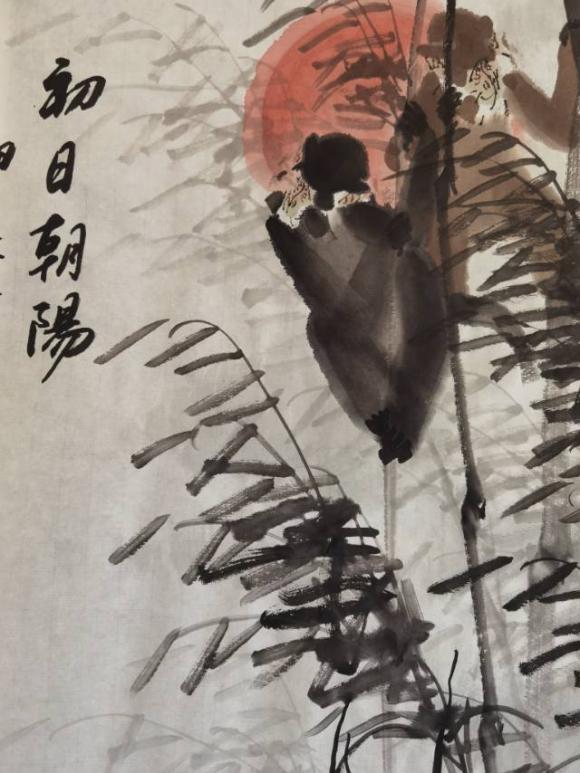 初日朝陽